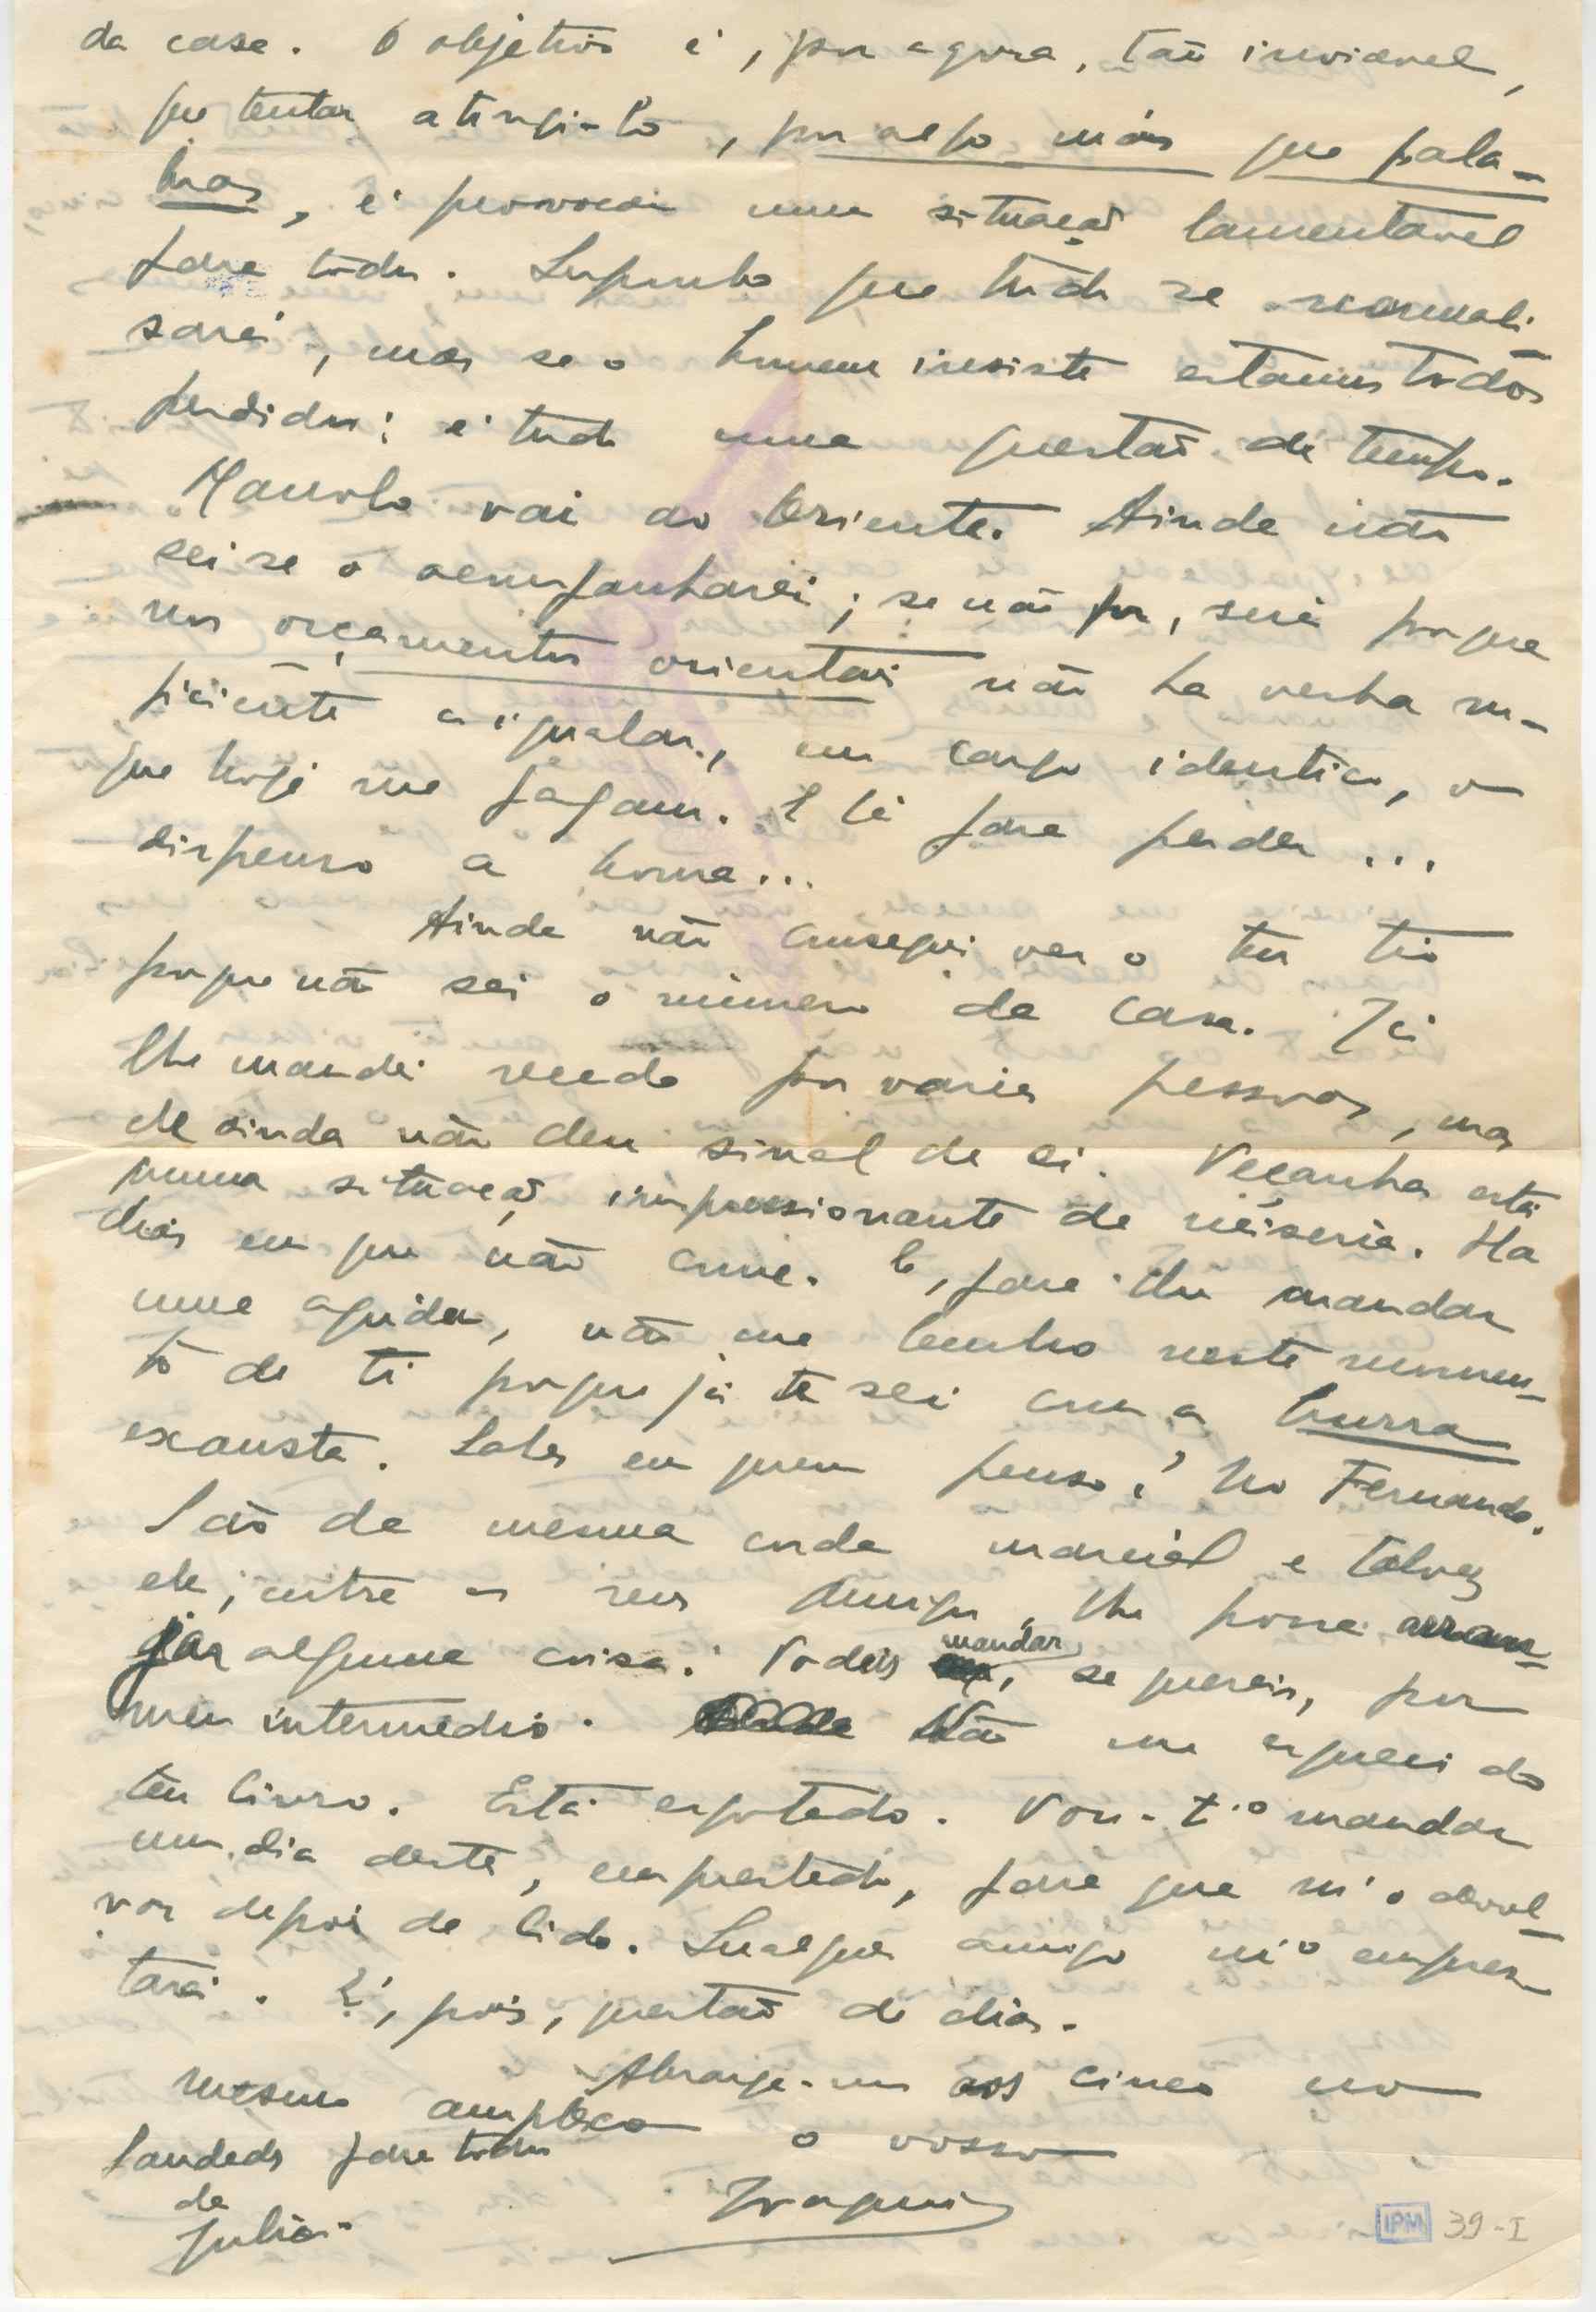 da casa. O objetivo é, por agora, tão inviavel,
que tentar atingi-lo, por algo mais que pala-
bras, é provocar uma situação lamentavel
para todos. Suponho que tudo se normali-
sará, mas se o homem insiste estamos todos
perdidos: é tudo uma questão de tempo.
Manolo vai ao Oriente. Ainda não
sei se o acompanharei; se não for, será porque
nos orçamentos orientais não ha verba su-
ficiente a igualar, em cargo identico, o
que hoje me pagam. E lá para perder...
dispenso a honra...
Ainda não consegui ver o teu tio
porque não sei o número da casa. Já
lhe mandei recado por varias pessoas, mas
ele ainda não deu sinal de si. Peçanha está
numa situação impressionante de miséria. Ha
dias em que não come. E, para lhe mandar
uma ajuda, não me lembro neste momen-
to de ti porque já te sei com a burra
exausta. Sabes em quem penso? No Fernando.
São da mesma onda marcial e talvez
ele, entre os seus amigos, lhe possa arran-
jar alguma coisa. Podeis mandar, se quereis, por
meu intermedio. Não me esqueci do
teu livro. Está esgotado. Vou-t'o mandar
um dia deste, emprestado, para que m'o devol-
vas depois de lido. Qualquer amigo m'o empres-
tará. É, pois, questão de dias.
Abraça-vos aos cinco no
mesmo amplexo o vosso
Saudades para todos
da
Julia.
Joaquim
IPM 39-I